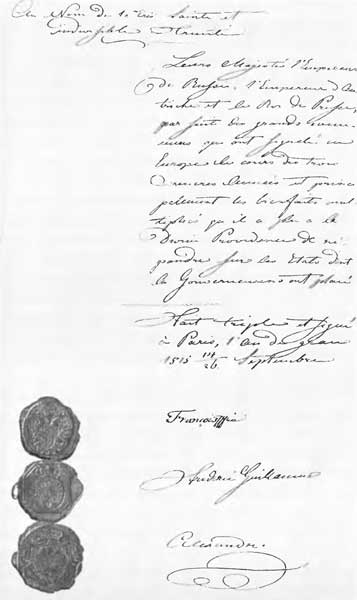 Au Nom de la très Sainte et
indivisible Trinité
Leurs Majestés l'Empereur
de Russie, l'Empereur d'Au
triche et le Roi de Prusse,
par suite des grands évene
mens qui ont signalé en
Europe le cours des trois
dernieres Années et princi
palement les bienfaits mul
tipliés qu'il a plu à la
Divine Providence de ré
pandre sur les Etats dont
les Gouvernemens ont placé
Fait triple et signé
à Paris, l'an de grace
1815 14/26 Septembre
François
Frédéric Guillaume
Alexandre.